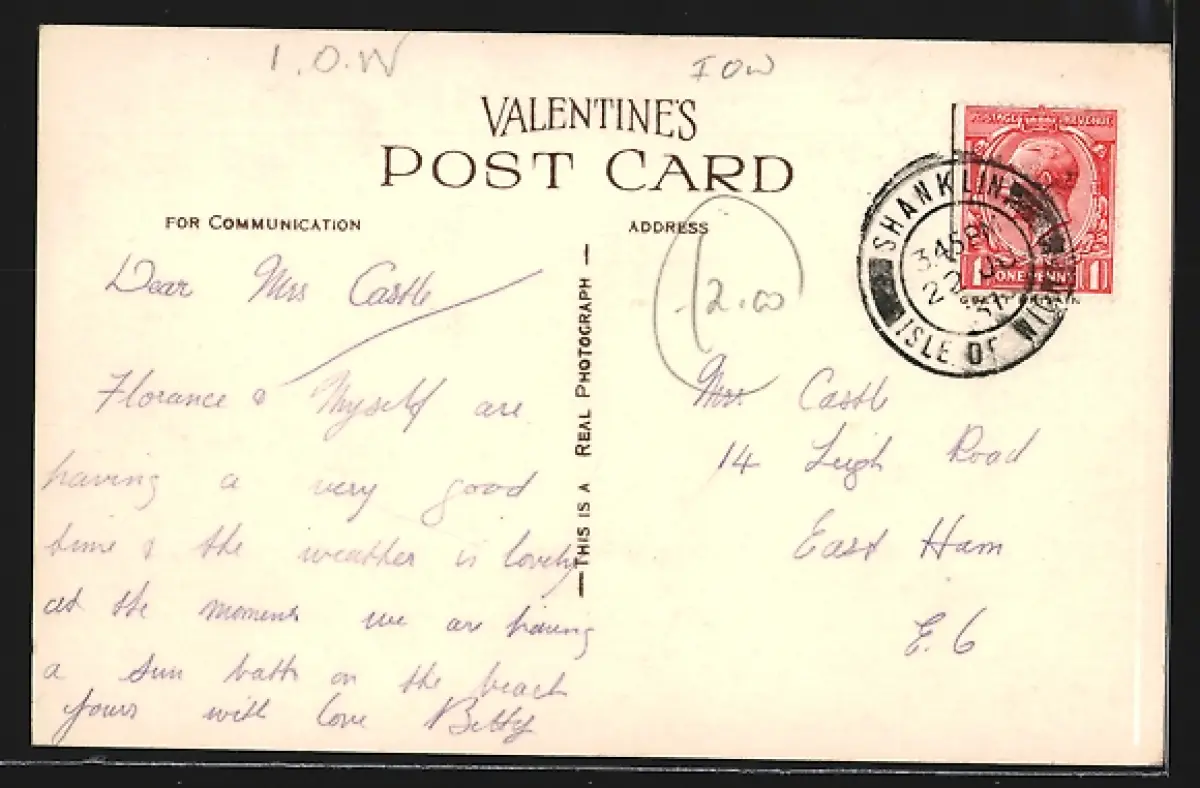 I.O.W
IOW
VALENTINE'S
POST CARD
FOR COMMUNICATION
ADDRESS
Dear Mrs Castle
Florance & Myself are
having a very good
time & the weather is lovely
at the moment we are having
a sun bath on the beach
yours with love Betty
THIS IS A REAL PHOTOGRAPH
2.00
Mrs. Castle
14 Leigh Road
East Ham
E. 6
POSTAGE REVENUE
1 ONE PENNY 1
SHANKLIN
3.45 PM
22 JU
31
ISLE OF WIGHT